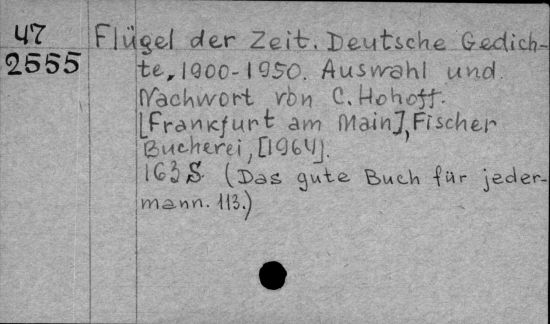 47
2555
Flügel der Zeit. Deutsche Gedich-
te, 1900-1950. Auswahl und
Nachwort von C. Hohoff.
[Frankfurt am Main], Fischer
Bucherei, [1964].
163 S. (Das gute Buch für jeder-
mann. 113.)